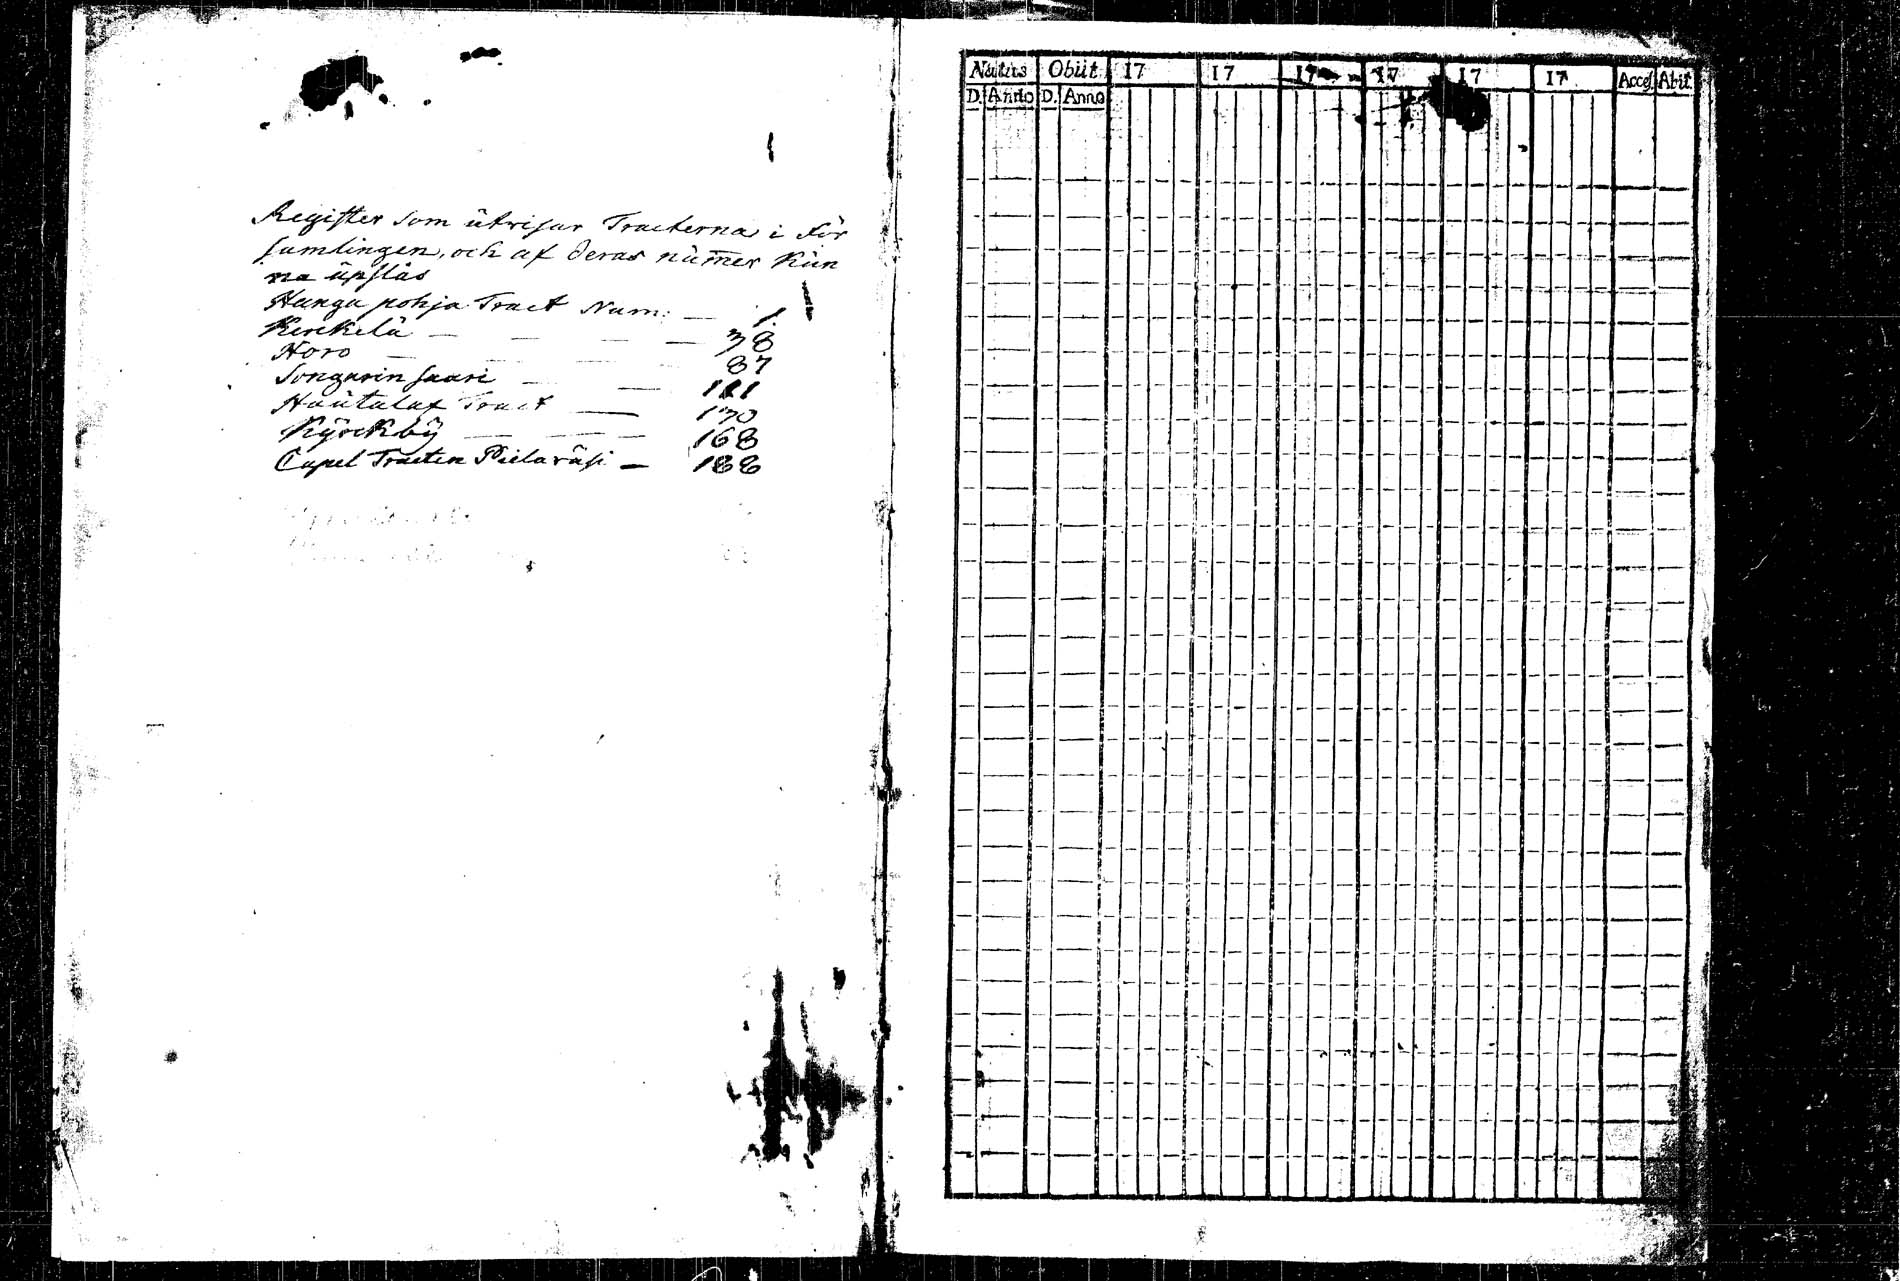 Register som ütvisar Tracterna i För
samlingen, och af deras nümer Kün
na üpslås
Hanga pohja Tract Num: — 1.
Kerckelä — — — — 38
Horo — — — — 87
Songarin saari — — 121
Haütalax Tract — 130
Kÿrckbÿ — — — 168
Capel Tracten Pielaväsi — 188
Natus Obiit 17 17 17 17 17 17 Acceſ. Abit.
D. Anno D. Anno